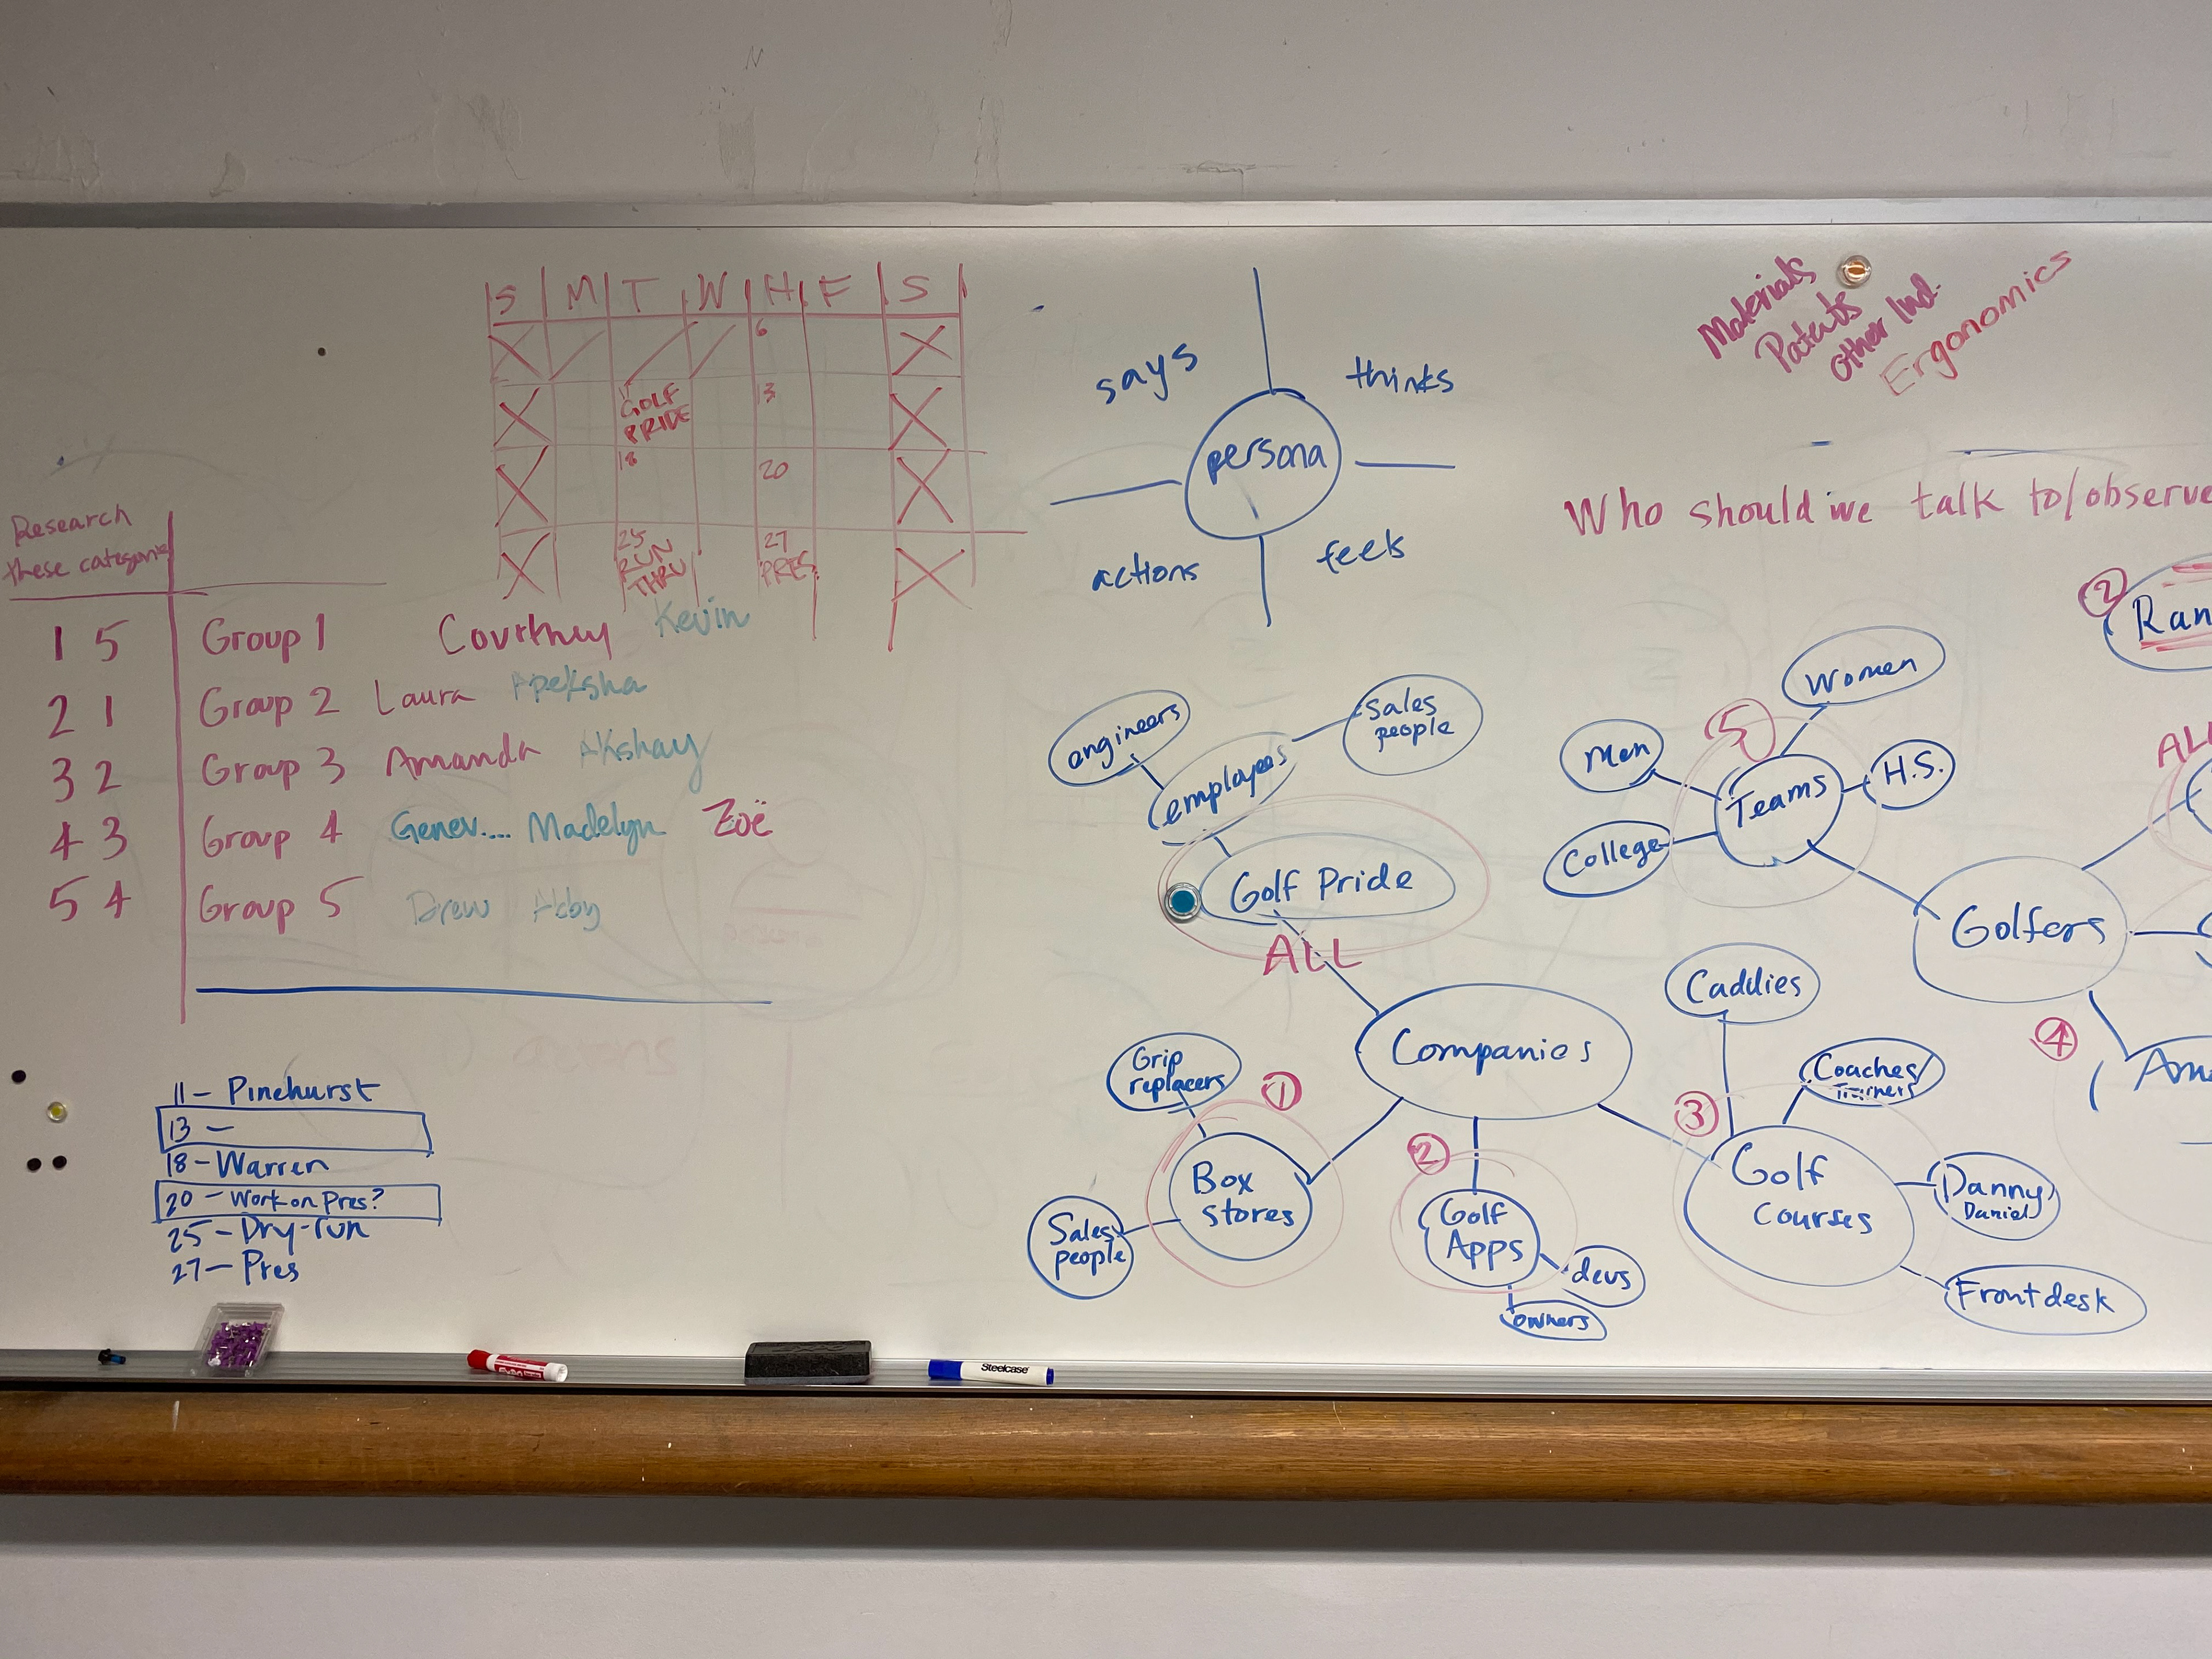 S M T W H F S
6
11 GOLF PRIDE
13
18
20
25 RUN THRU
27 PRES.
Research
these categories
1 5 Group 1 Courtney Kevin
2 1 Group 2 Laura Apeksha
3 2 Group 3 Amanda Akshay
4 3 Group 4 Genev.... Madelyn Zoë
5 4 Group 5 Drew Abby
11 – Pinehurst
13 –
18 – Warren
20 – Work on Pres?
25 – Dry-run
27 – Pres
says
thinks
persona
actions
feels
Materials
Patents
Other Ind.
Ergonomics
Who should we talk to/observe
engineers
employees
Sales
people
Golf Pride
ALL
Companies
Grip
replacers
1
Box
stores
Sales
people
2
Golf
Apps
devs
owners
3
Golf
Courses
Caddies
Coaches/
Trainers
Danny
Daniel
Front desk
5
Teams
Men
Women
H.S.
College
Golfers
2
Ran
ALL
4
Am
Steelcase